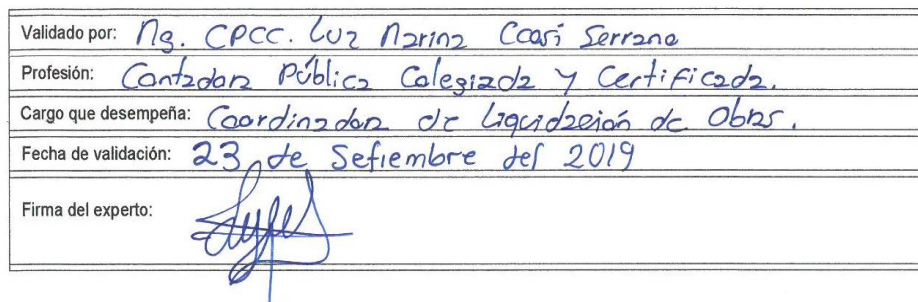 Validado por: Mg. CPCC. Luz Marina Ccasi Serrano
Profesión: Contadora Pública Colegiada y Certificada.
Cargo que desempeña: Coordinadora de Liquidación de Obras.
Fecha de validación: 23 de Setiembre del 2019
Firma del experto: